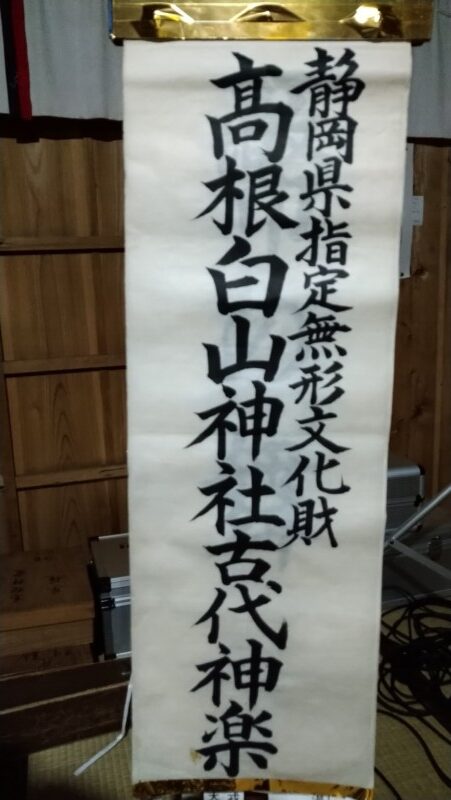 静岡県指定無形文化財
髙根白山神社古代神楽